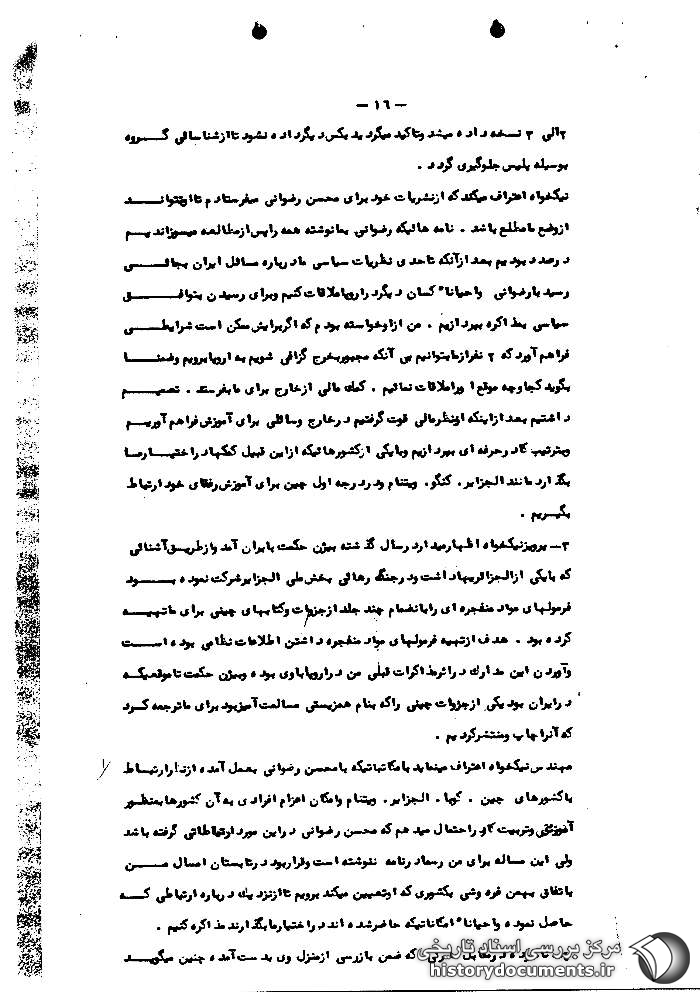 — ۱٦ —
۲الی ۳ نسخه داده میشد وتاکید میگردید بکس دیگر داده نشود تا از شناسائی گروه
بوسیله پلیس جلوگیری گردد .
نیکخواه اعتراف میکند که از نشریات خود برای محسن رضوانی میفرستادم تا او بتواند
از وضع ما مطلع باشد . نامه هائیکه رضوانی بما نوشته همه را پس از مطالعه میسوزاندیم
درصد د بودیم بعد از آنکه تا حدی نظریات سیاسی ما درباره مسائل ایران بجائی
رسید با رضوانی واحیانا" کسان دیگر در اروپا ملاقات کنیم وبرای رسیدن بتوافق
سیاسی بمذاکره بپردازیم . من از او خواسته بودم که اگر برایش ممکن است شرایطی
فراهم آورد که ۲ نفر از ما بتوانیم بی آنکه مجبور بخرج گزافی شویم به اروپا برویم وضمنا
بگوید کجا وچه موقع او را ملاقات نمائیم . کمک مالی از خارج برای ما بفرستد . تصمیم
داشتیم بعد از اینکه از نظر مالی قوت گرفتیم در خارج وسائلی برای آموزش فراهم آوریم
وبترتیب کادر حرفه ای بپردازیم وبا یکی از کشورهائیکه از این قبیل کمکها در اختیار ما
بگذارد مانند الجزایر . کنگو . ویتنام ودر درجه اول چین برای آموزش رفقای خود ارتباط
بگیریم .
۳ــ پرویز نیکخواه اظهار میدارد رسال گذشته بیژن حکمت بایران آمد واز طریق آشنائی
که با یکی از الجزائریها داشت ودر جنگ رهائی بخش ملی الجزایر شرکت نموده بود
فرمولهای مواد منفجره ای را بانضمام چند جلد از جزوات وکتابهای چینی برای ما تهیه
کرده بود . هدف از تهیه فرمولهای مواد منفجره داشتن اطلاعات نظامی بوده است
وآوردن این مدارک در اثر مذاکرات قبلی من در اروپا با وی بوده وبیژن حکمت تا موقعیکه
در ایران بود یکی از جزوات چینی را که بنام همزیستی مسالمت آمیز بود برای ما ترجمه کرد
که آنرا چاپ ومنتشر کردیم .
مهندس نیکخواه اعتراف مینماید با مکاتباتیکه با محسن رضوانی بعمل آمده از نظر ارتباط
با کشورهای چین . کوبا . الجزایر . ویتنام وامکان اعزام افرادی به آن کشورها بمنظور
آموزش وتربیت کادر احتمال میدهم که محسن رضوانی در این مورد ارتباطاتی گرفته باشد
ولی این مساله برای من رسما در نامه ننوشته است وقرار بود در تابستان امسال من
باتفاق بهمن فره وشی بکشوری که او تعیین میکند برویم تا از نزدیک درباره ارتباطی که
حاصل نموده واحیانا" امکاناتیکه حاضر شده اند در اختیار ما بگذارند مذاکره کنیم .
که ضمن بازرسی از منزل وی بدست آمده چنین میگوید
مرکز بررسی اسناد تاریخی
historydocuments.ir